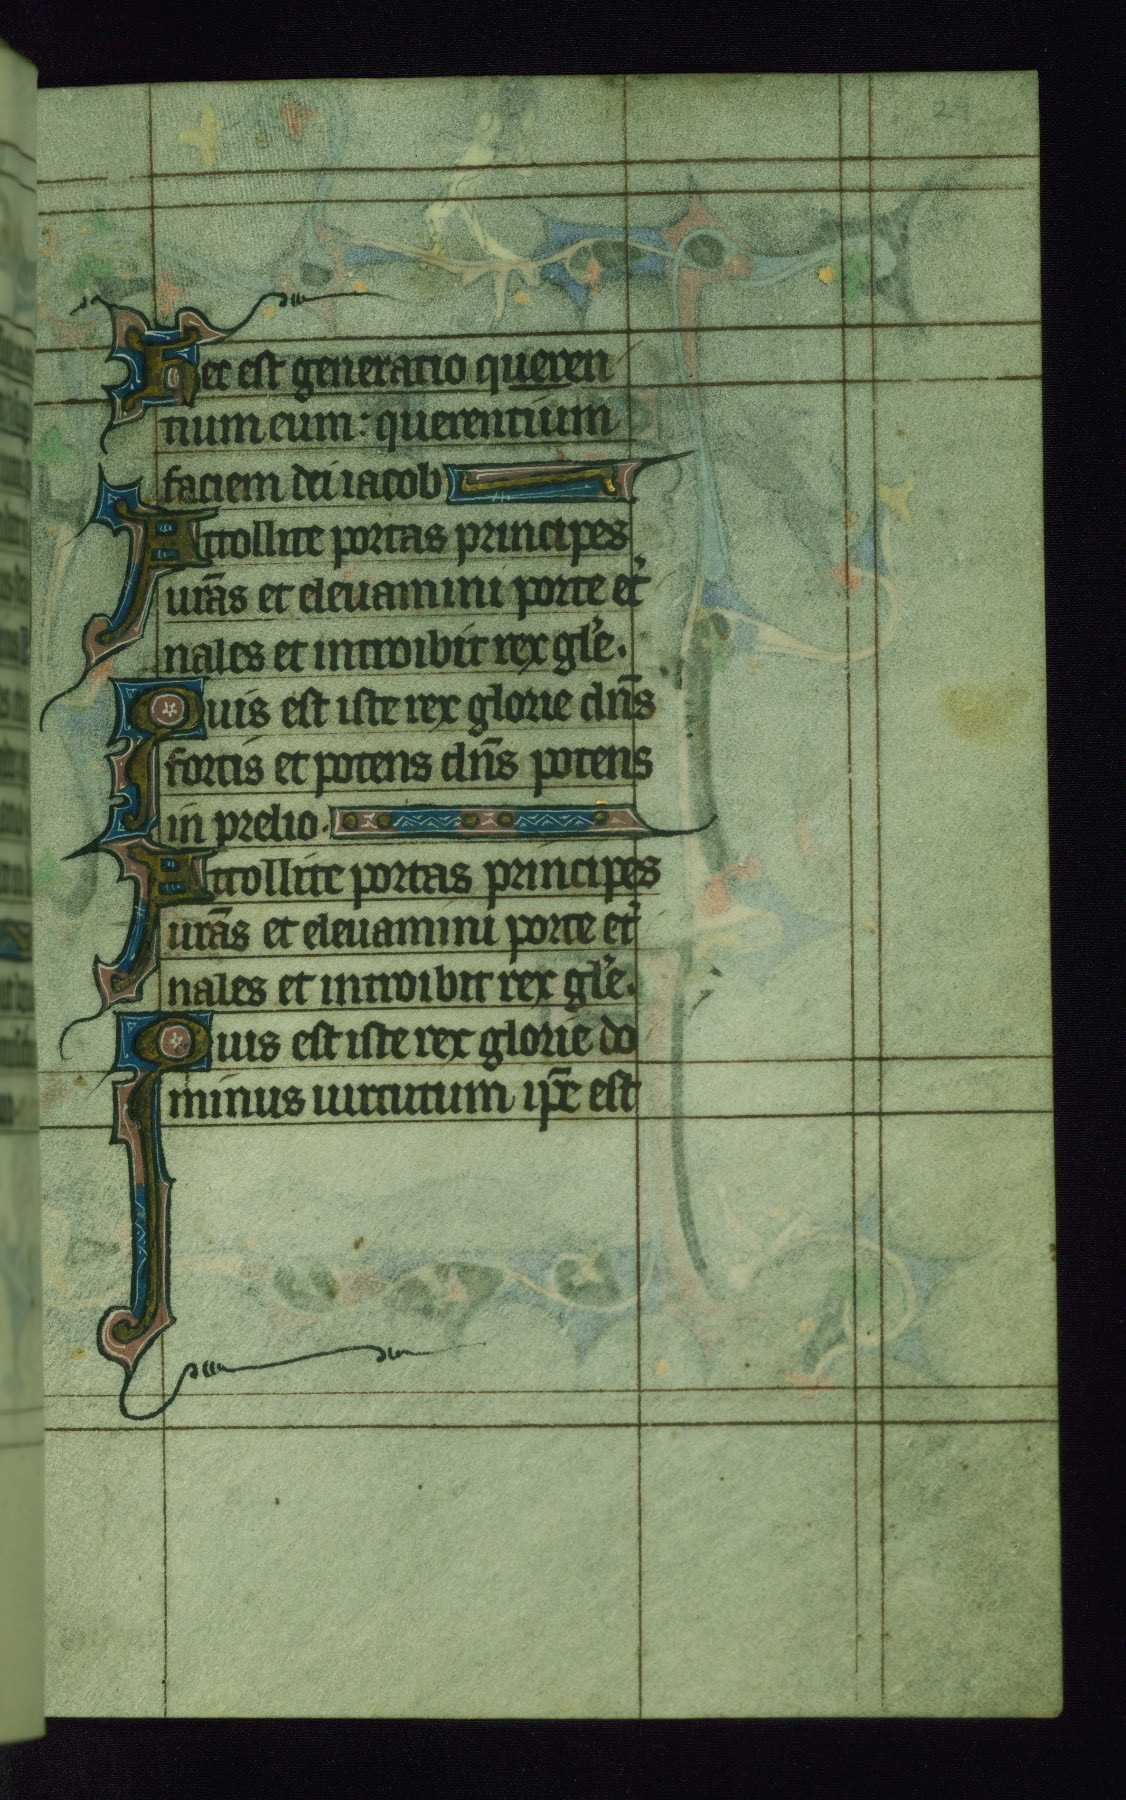 29
Hec est generatio queren
tium eum: querentium
faciem dei iacob
Attollite portas principes
urãs et eleuamini porte et̾
nales et introibit rex gl̾e.
Quis est iste rex glorie dñs
fortis et potens dñs potens
in prelio.
Attollite portas principes
urãs et eleuamini porte et̾
nales et introibit rex gl̾e.
Quis est iste rex glorie do
minus uirtutum ip̃e est